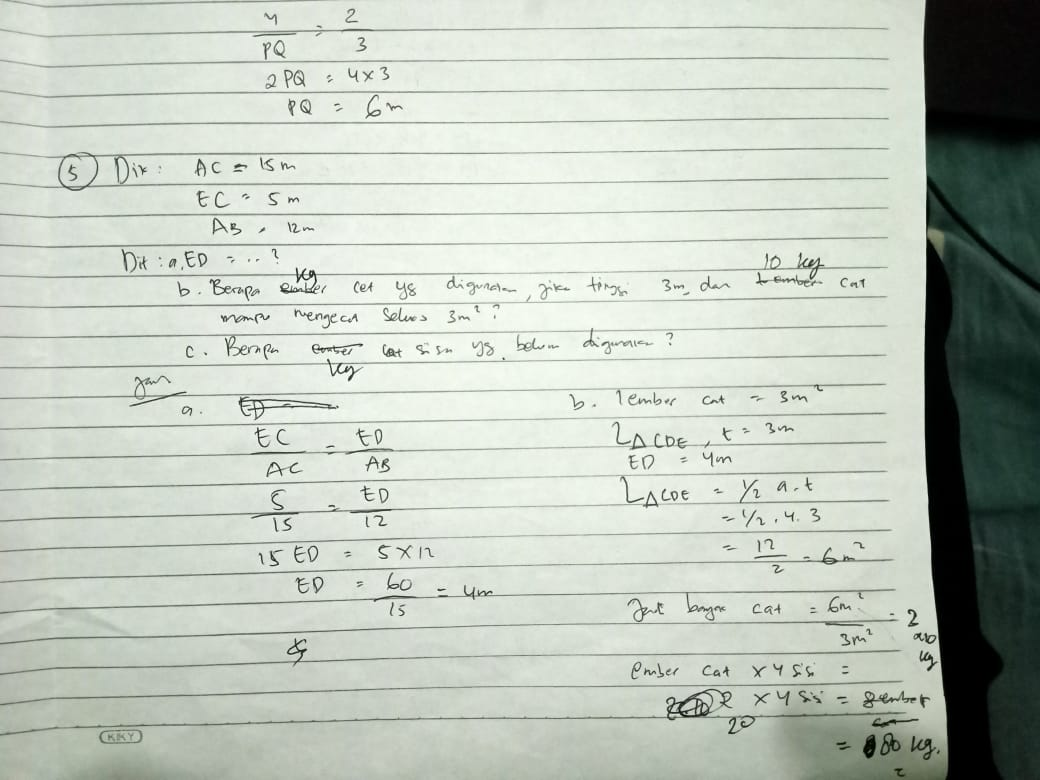 4/PQ = 2/3
2 PQ = 4x3
PQ = 6m
5 Dik : AC = 15m
EC = 5 m
AB = 12m
Dit : a, ED = .. ?
b. Berapa ember kg cat yg digunakan, jika tinggi 3m, dan 1 ember 10 kg cat
mampu mengecat seluas 3m² ?
c. Berapa ember kg cat sisa yg belum digunakan ?
Jwb
a. ED
EC/AC = ED/AB
5/15 = ED/12
15 ED = 5 x 12
ED = 60/15 = 4m
b. 1 ember cat = 3m²
L△CDE, t = 3m
ED = 4m
L△CDE = 1/2 a.t
= 1/2 . 4. 3
= 12/2 = 6m²
cat = 6m²/3m² = 2
kg
ember cat x 4 sisi =
2 x 4 sisi = 8 ember
20
= 80 kg.
KIKY